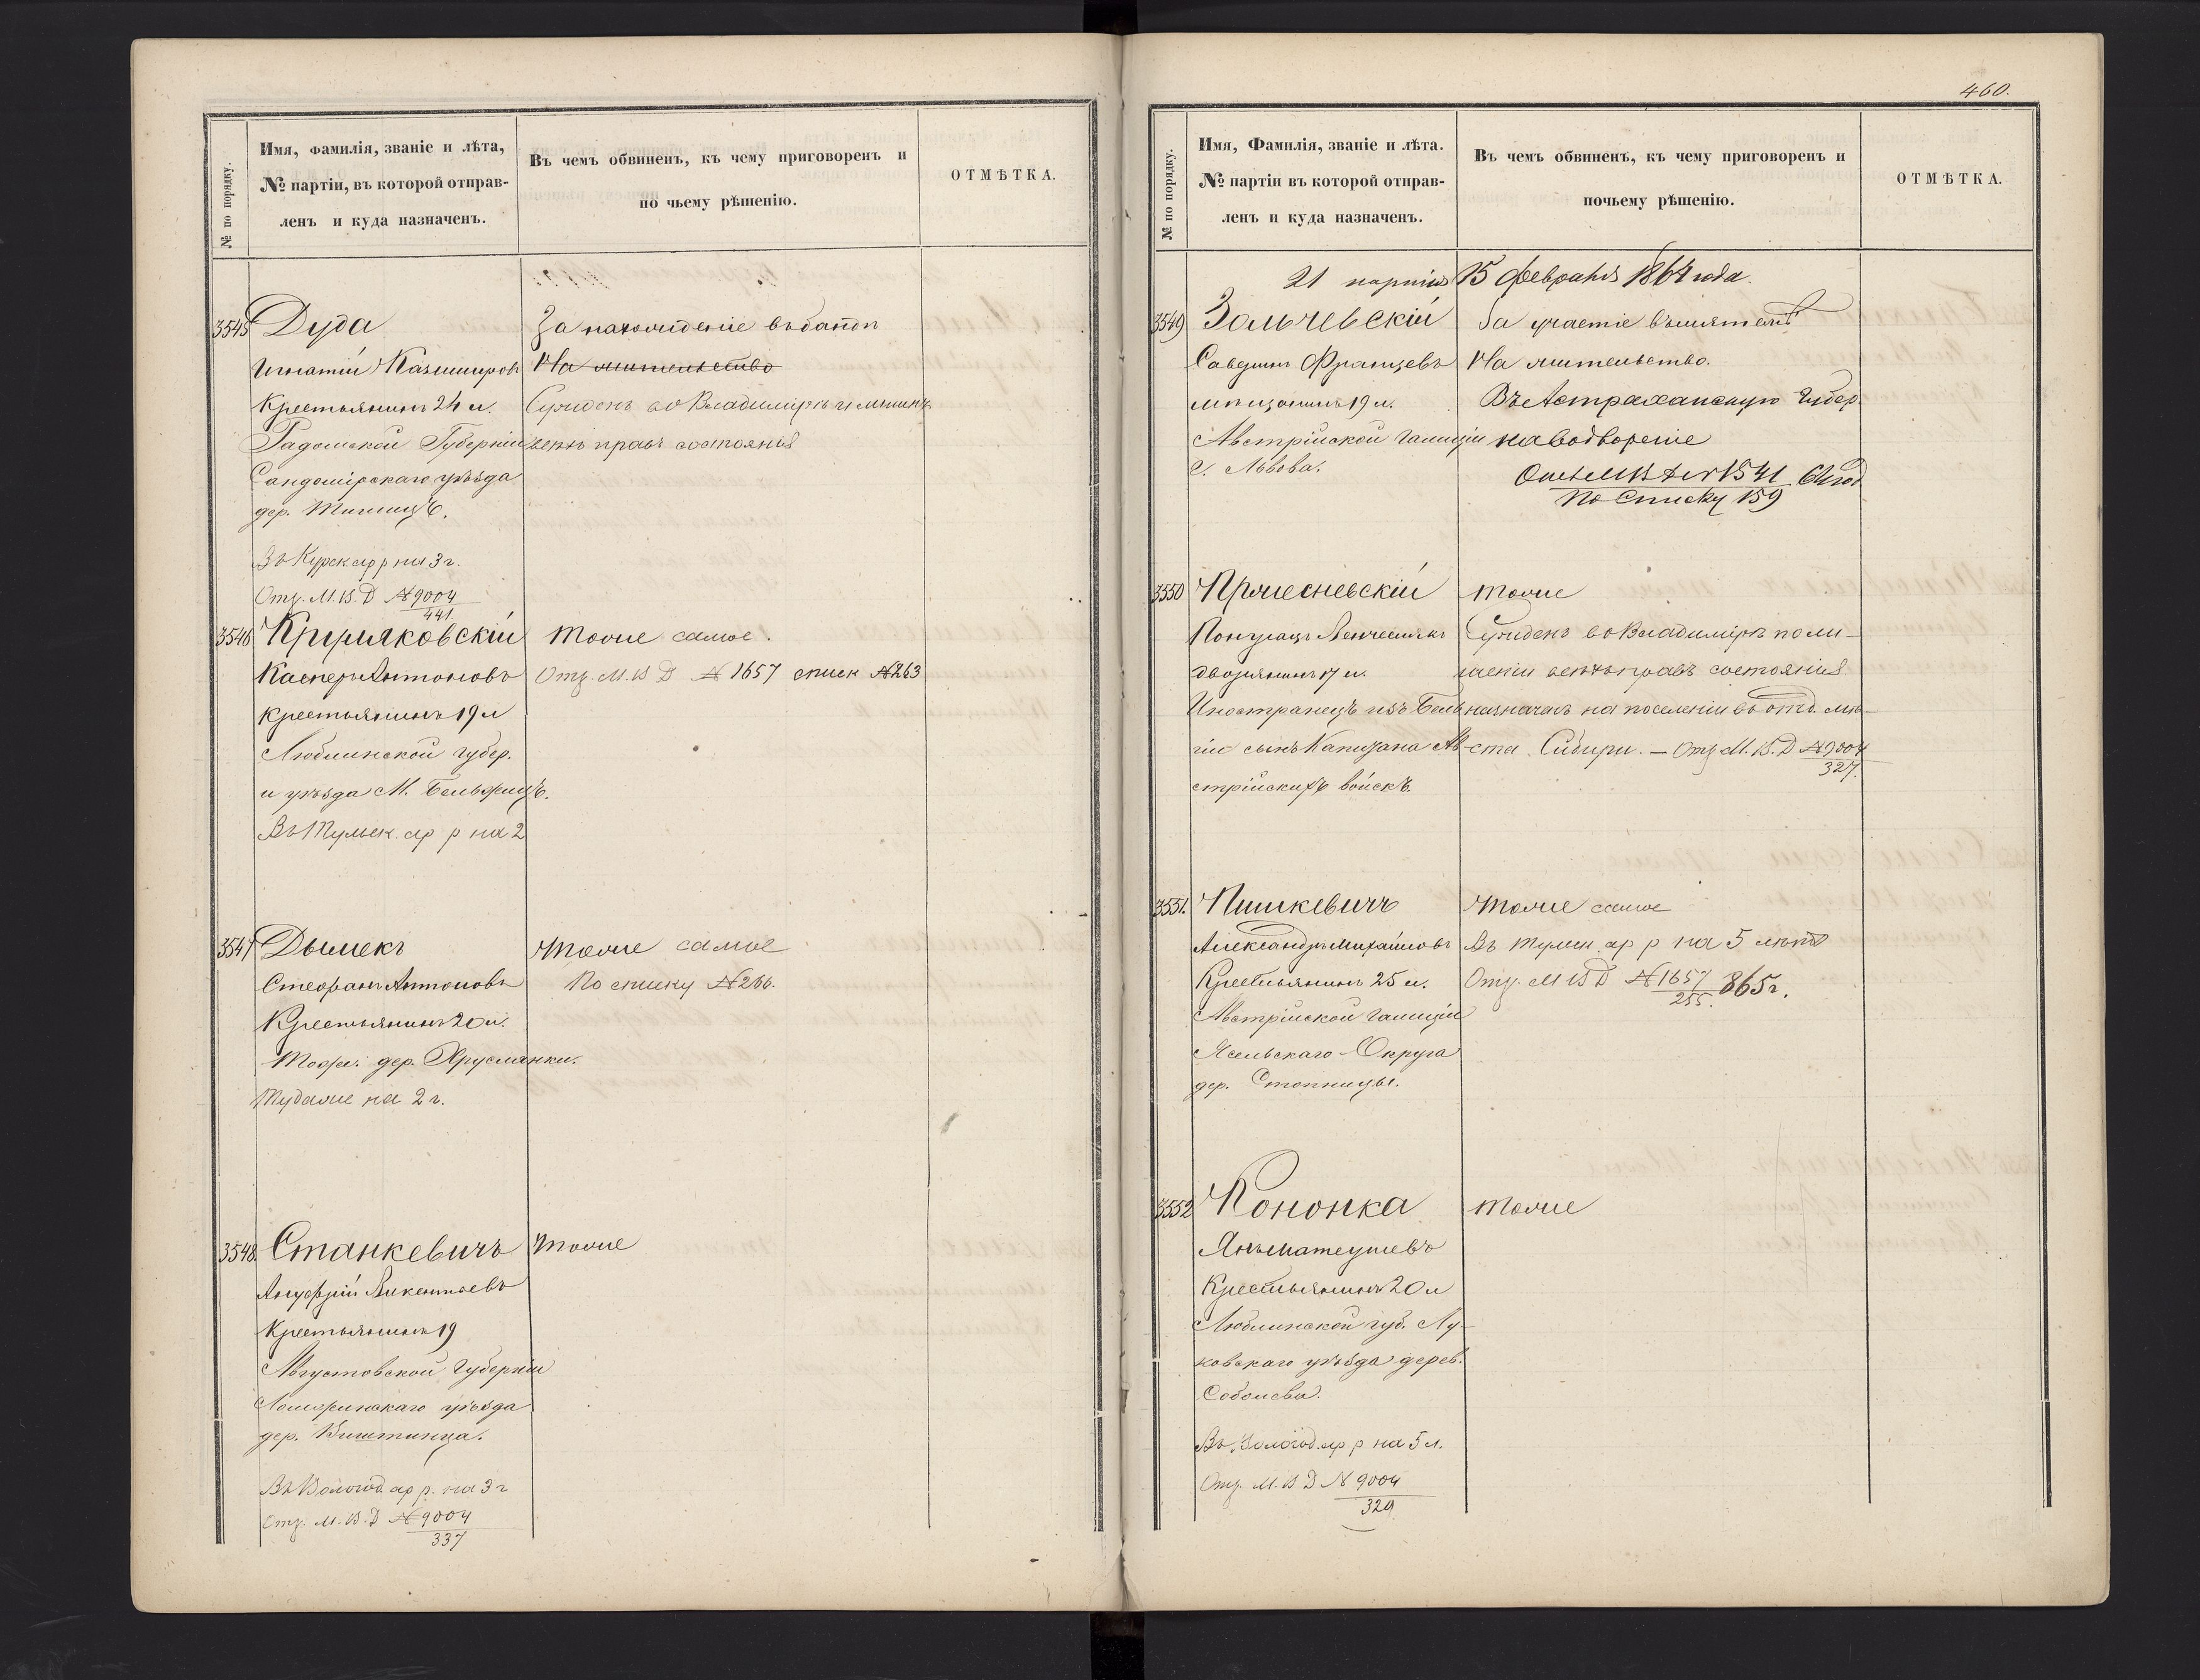 № по порядку.
Имя, фамилія, званіе и лѣта,
№ партіи, въ которой отправ-
ленъ и куда назначенъ.
Въ чемъ обвиненъ, къ чему приговоренъ и
по чьему рѣшенію.
ОТМѢТКА.
3545
Дуда
Игнатій Казимировъ
Крестьянинъ 24 л.
Радомской Губерніи
Сандомірскаго уѣзда
дер.
Въ Курск ар р на 3 г.
Отз. М. В. Д № 9004
441.
За нахожденіе въ бандѣ
На жительство
Сужденъ во Владимірѣ и лишенъ
всѣхъ правъ состоянія
3546
Касперъ Антоновъ
Крестьянинъ 19 л
Люблинской губер.
и уѣзда М. Белжицъ.
Въ Тульск. ар р на 2
тоже самое.
Отз. М. В Д № 1657 списк № 263
3547
Дымекъ
Стефанъ Антоновъ
Крестьянинъ 20 л.
дер. Хруслянки.
Тудаже на 2 г.
тоже самое
По списку № 266.
3548.
Станкевичъ
Викентьевъ
Крестьянинъ 19
Августовской Губерніи
Ломжинскаго уѣзда
дер.
Въ Вологод ар р. на 3 г
Отз. М. В. Д № 9004
337
тоже
460.
№ по порядку.
Имя, Фамилія, званіе и лѣта.
№ партіи въ которой отправ-
ленъ и куда назначенъ.
Въ чемъ обвиненъ, къ чему приговоренъ и
почьему рѣшенію.
ОТМѢТКА.
21 партія 15 февраля 1864 года.
3549
Зольчевскій
Францевъ
мѣщанинъ 19 л.
Австрійской Галиціи
г. Львова.
За участіе въ мятежѣ
На жительство.
Въ Астраханскую Губер
на водвореніе
1541
По Списку 159
3550
дворянинъ 17 л.
Иностранецъ изъ Бель
гіи сынъ Капитана Ав-
стрійскихъ войскъ.
тоже
Сужденъ во Владимірѣ по ли-
шеніи всѣхъ правъ состоянія
назначенъ на поселеніе въ отд. мѣ-
ста Сибири. — Отз М. В. Д № 9004
327.
3551.
Пишкевичъ
Александръ Михайловъ
Крестьянинъ 25 л.
Австрійской Галиціи
Ясельскаго Округа
дер. Стопницы.
тоже самое
Въ тульск. ар р на 5 лѣтъ
Отз. М В Д № 1657
255. 865 г.
3552
Кононка
Янъ Матеушевъ
Крестьянинъ 20 л
Люблинской губ. Лу-
ковскаго уѣзда дерев.
Соболева.
Въ Вологод. ар р на 5 л.
Отз. М. В Д № 9004
329
тоже